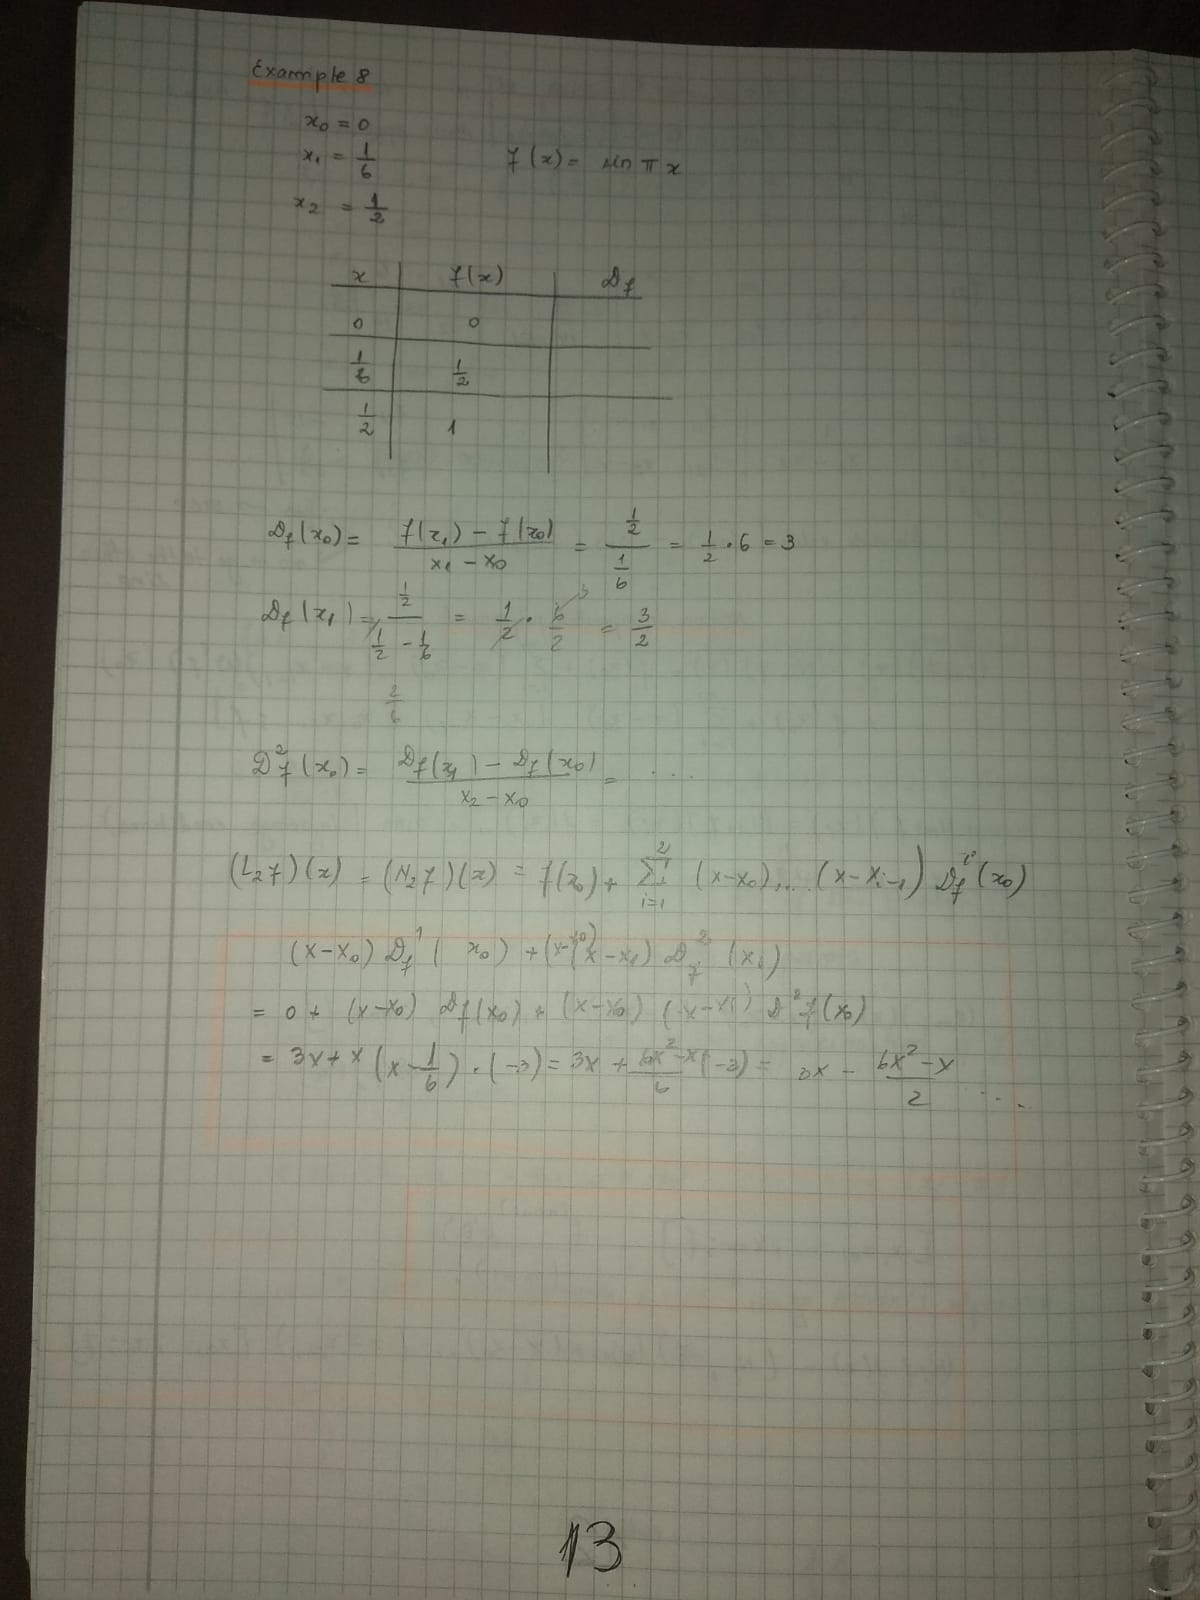 Example 8
x₀ = 0
x₁ = 1/6 f(x) = sin π x
x₂ = 1/2
x f(x) D_f
0 0
1/6 1/2
1/2 1
D_f(x₀) = (f(x₁) − f(x₀))/(x₁ − x₀) = (1/2)/(1/6) = 1/2 · 6 = 3
D_f(x₁) = (1/2)/(1/2 − 1/6) = 1/2 · 6/2 = 3/2
2/6
D²f(x₀) = (D_f(x₁) − D_f(x₀))/(x₂ − x₀) = ....
(L₂f)(x) = (N₂f)(x) = f(x₀) + Σ_{i=1}^{2} (x−x₀)...(x−x_{i−1}) D_f^i(x₀)
(x−x₀) D_f^1(x₀) + (x−x₀)(x−x₁) D_f^2(x₀)
= 0 + (x−x₀) Df(x₀) + (x−x₀)(x−x₁) D²f(x₀)
= 3x + x(x − 1/6) · (−3) = 3x + (6x²−x)/6 (−3) = 3x − (6x²−x)/2 ....
13